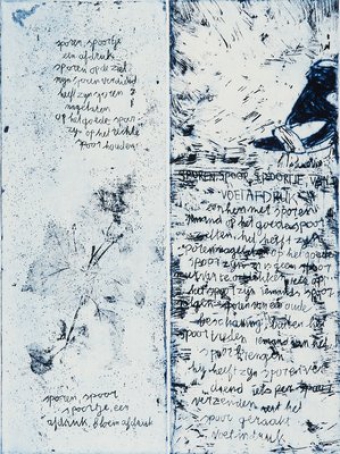 sporen, spoortje
een afdruk
sporen op de ziel
zijn sporen verdiend
heeft zijn sporen
nagelaten
op het goede spoor
zijn op het rechte
spoor houden
sporen, spoor
spoortje, een
afdruk, bloem afdruk
SPOREN SPOOR, SPOORTJE VAN
VOETAFDRUK
aankomen met sporen
iemand op het goede spoor
zetten, hij heeft zijn
sporen nagelaten op het goede
spoor zijn er is geen spoor
van te ontdekken iets op
het spoor zijn iemands spoor
volgen sporen van een oude
beschaving, buiten het
spoor treden iemand van het
spoor brengen
hij heeft zijn sporen ver-
diend iets per spoor
verzenden
spoor geraakt